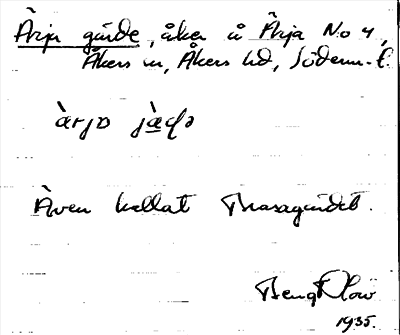 Ärja gärde, åker å Ärja No 4,
Åkers sn, Åkers hd, Söderm. l.
àrja jàdə
Även kallat Mossagärdet.
Bengt Löw
1935.